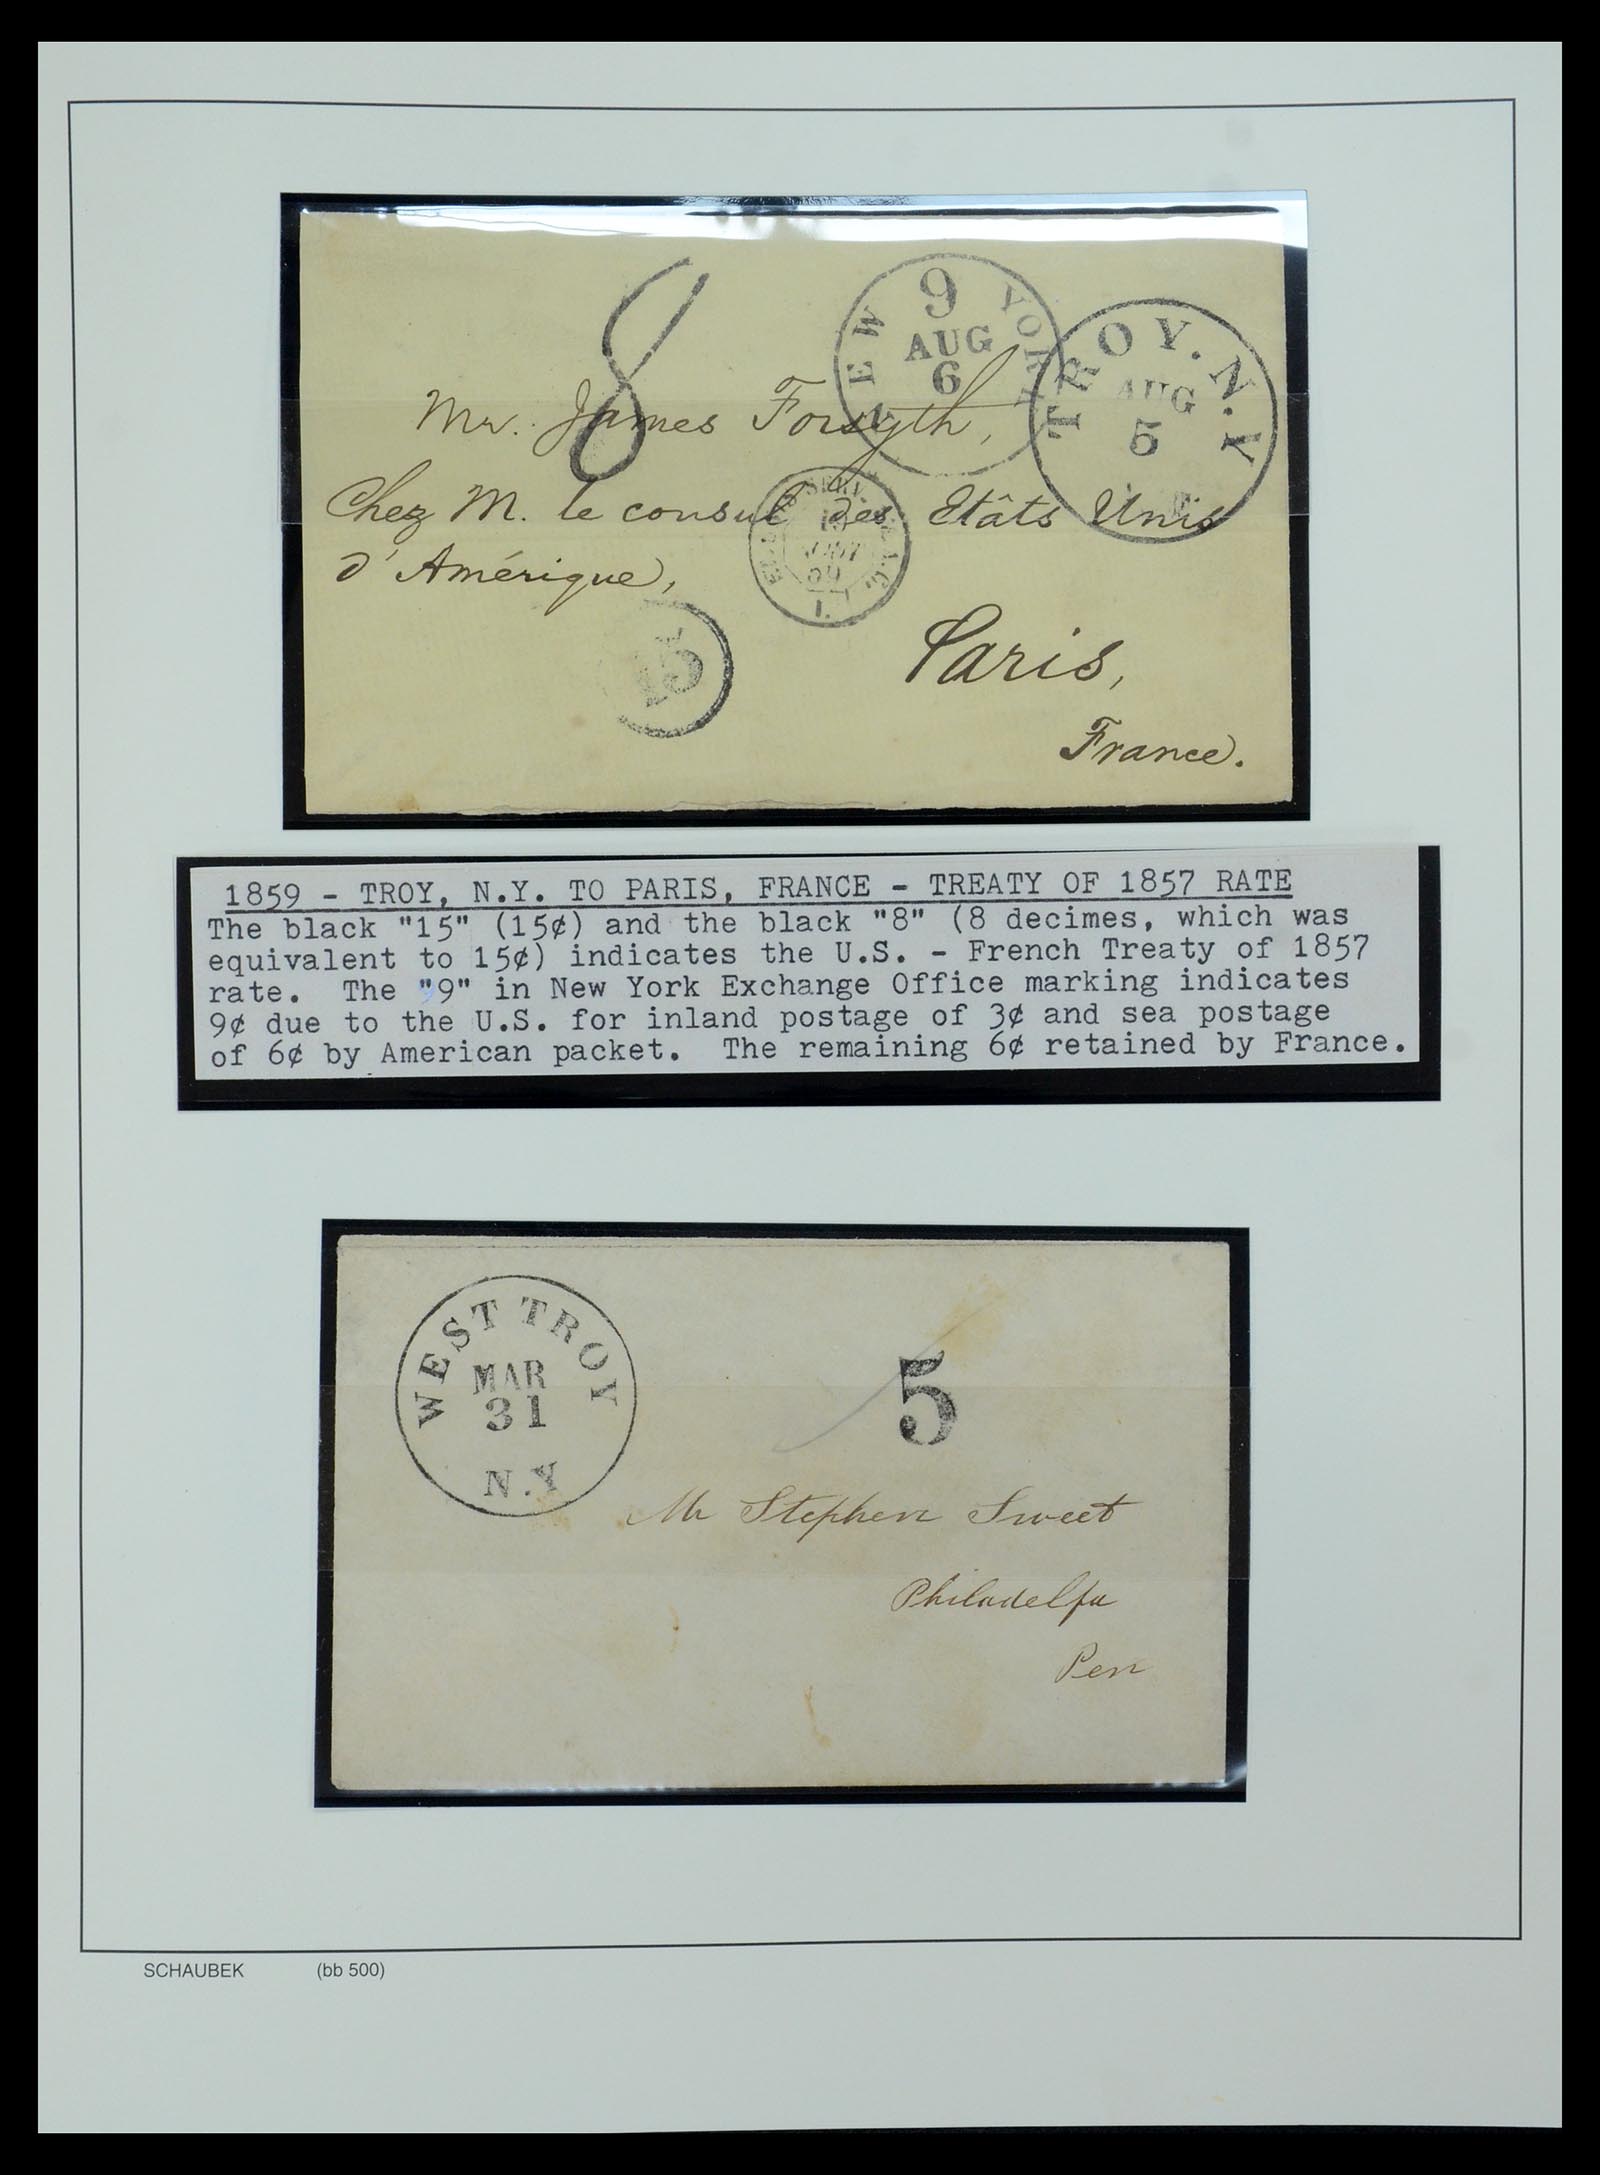 8
9
NEW YORK
AUG
6
TROY. N. Y
AUG
5
Mr. James Forsyth,
Chez M. le consul des Etâts Unis
d'Amérique,
15
Paris,
France.
1859 - TROY, N.Y. TO PARIS, FRANCE - TREATY OF 1857 RATE
The black "15" (15¢) and the black "8" (8 decimes, which was
equivalent to 15¢) indicates the U.S. - French Treaty of 1857
rate. The "9" in New York Exchange Office marking indicates
9¢ due to the U.S. for inland postage of 3¢ and sea postage
of 6¢ by American packet. The remaining 6¢ retained by France.
WEST TROY
MAR
31
N.Y
5
Mr Stephen Sweet
Philadelfa
Pen
SCHAUBEK (bb 500)